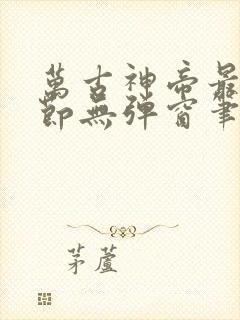 萬古神帝最
節無彈窗筆
茅蘆